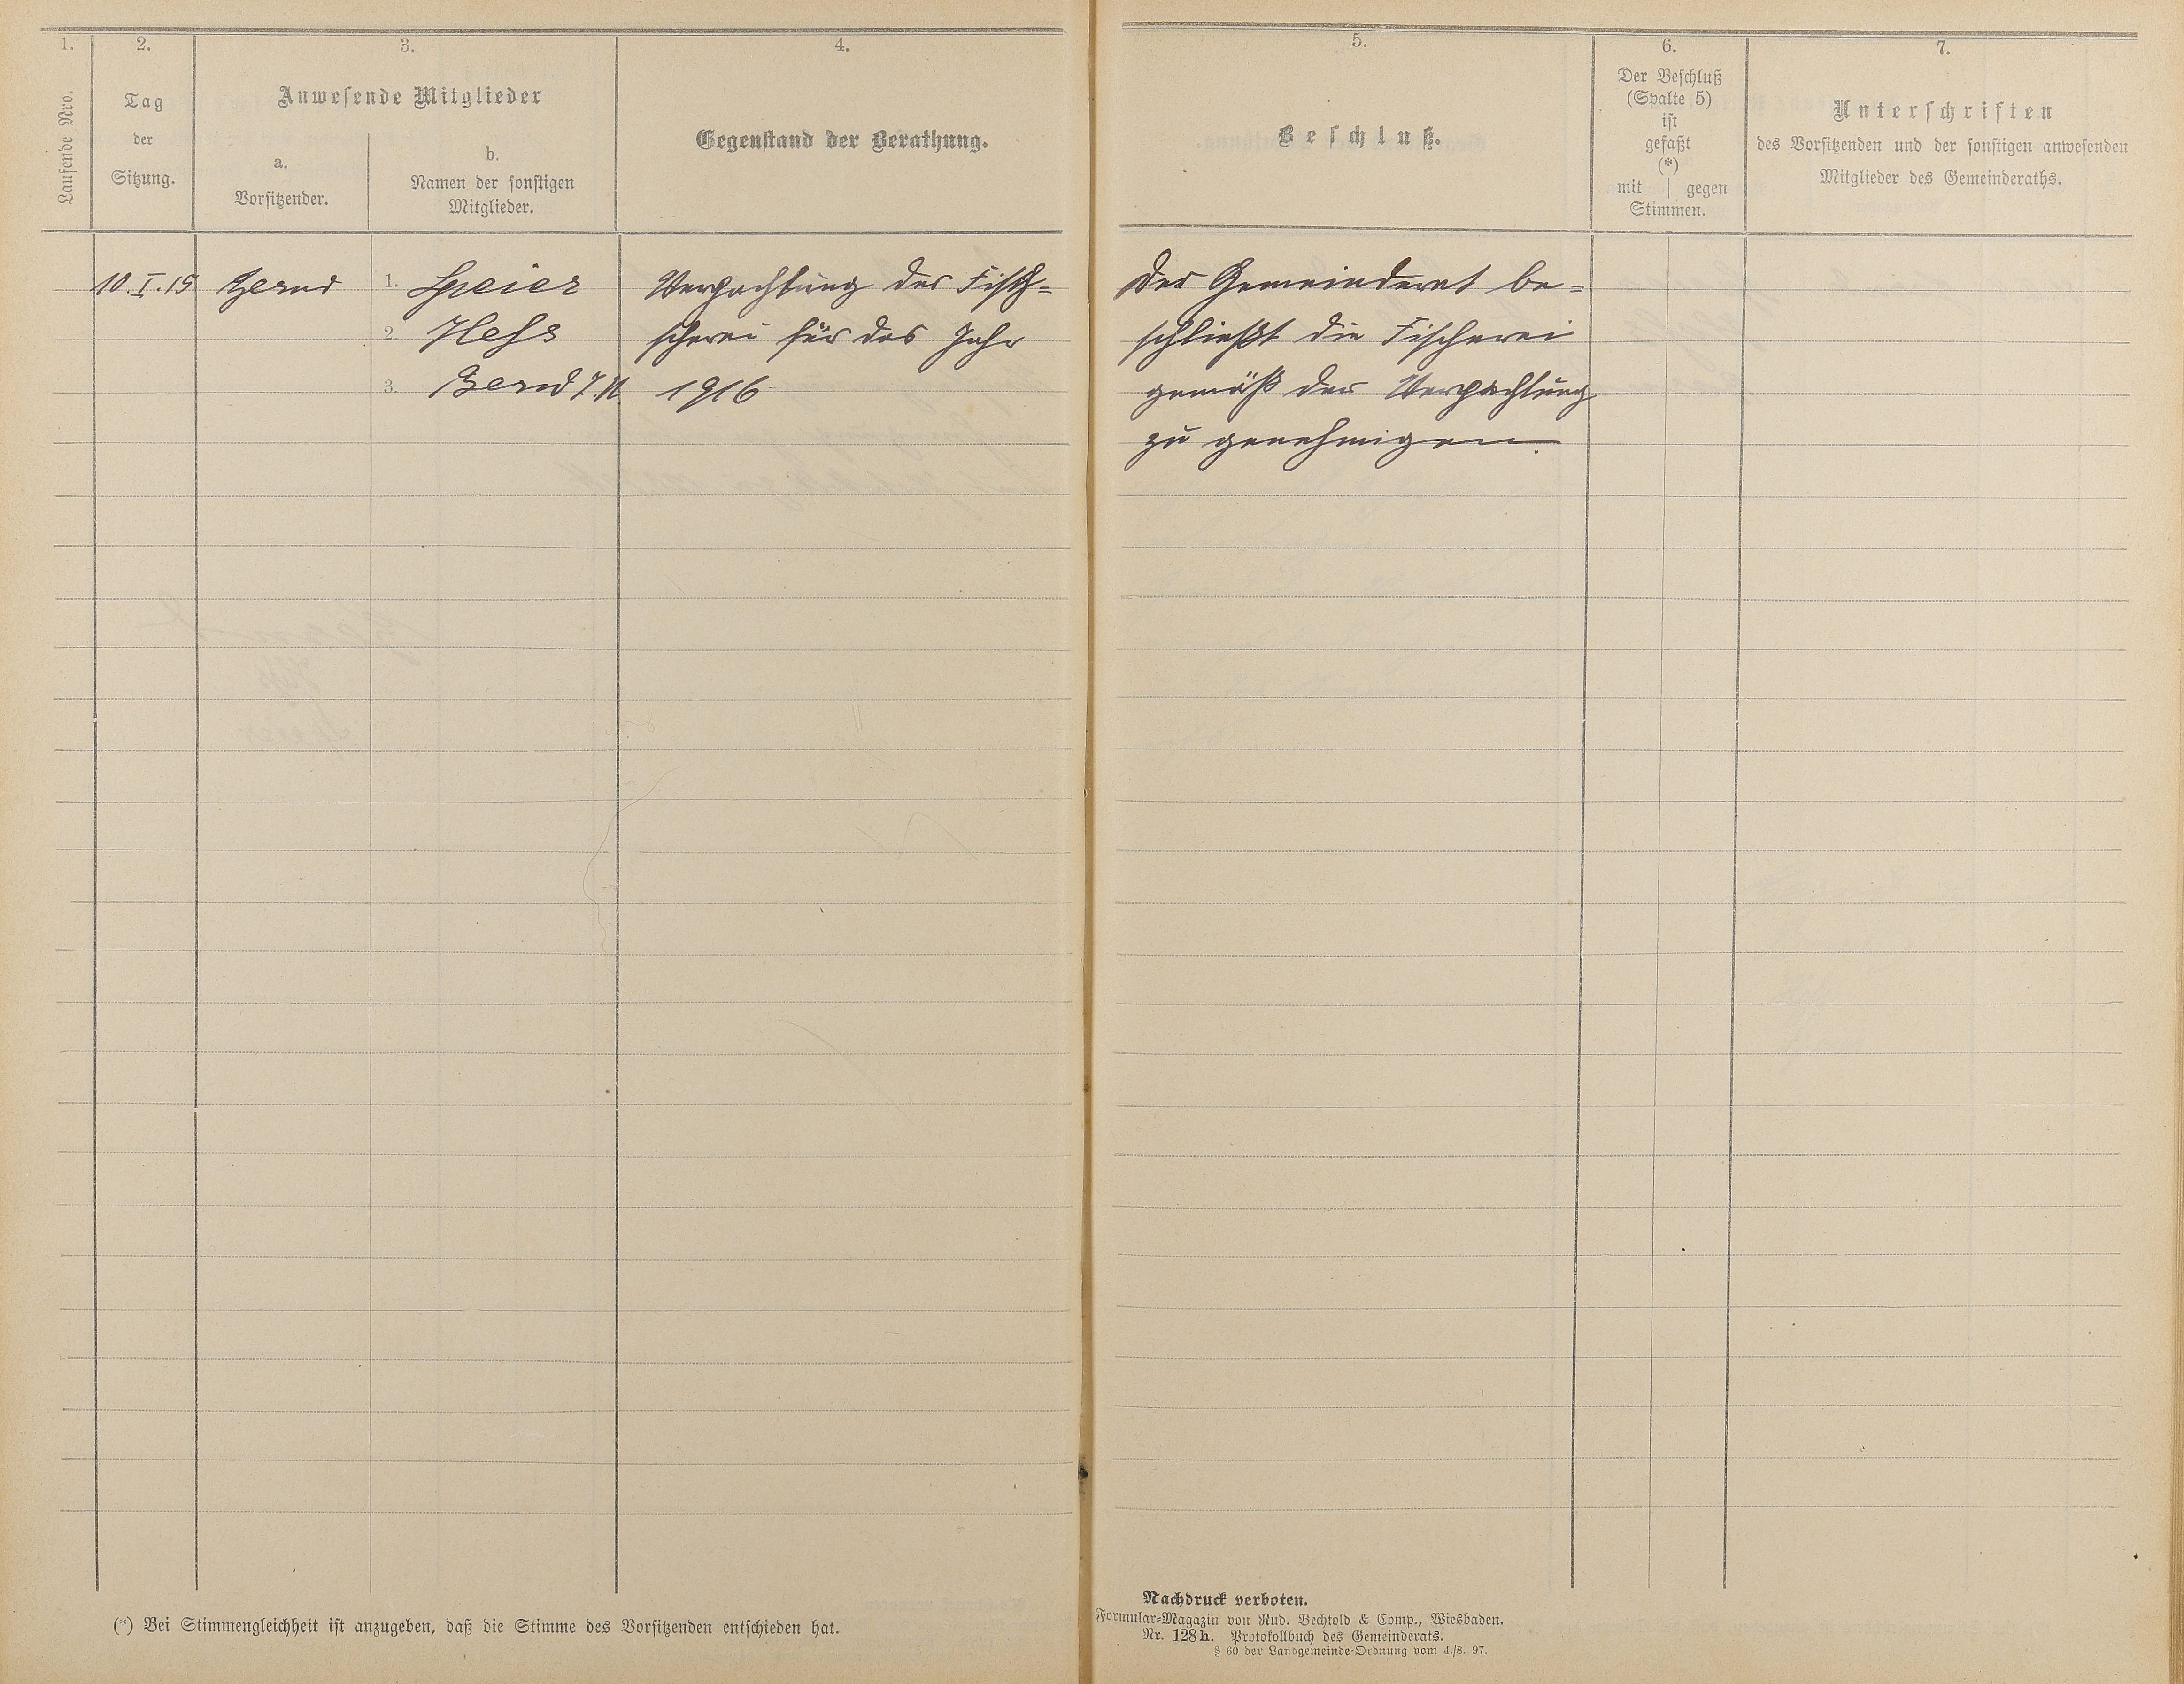 1.
Laufende Nro.
2.
Tag
der
Sitzung.
3.
Anwesende Mitglieder
a.
Vorsitzender.
b.
Namen der sonstigen
Mitglieder.
4.
Gegenstand der Berathung.
5.
Beschluß.
6.
Der Beschluß
(Spalte 5)
ist
gefaßt
(*)
mit | gegen
Stimmen.
7.
Unterschriften
des Vorsitzenden und der sonstigen anwesenden
Mitglieder des Gemeinderaths.
10.I.15
Bernd
1. Speier
2. Heß
3. Bernd
Verpachtung der Fisch=
scherei für das Jahr
1916
Der Gemeinderat be=
schließt die Fischerei
gemäß der Verpachtung
zu genehmigen.
(*) Bei Stimmengleichheit ist anzugeben, daß die Stimme des Vorsitzenden entschieden hat.
Nachdruck verboten.
Formular=Magazin von Rud. Bechtold & Comp., Wiesbaden.
Nr. 128h. Protokollbuch des Gemeinderats.
§ 60 der Landgemeinde-Ordnung vom 4./8. 97.